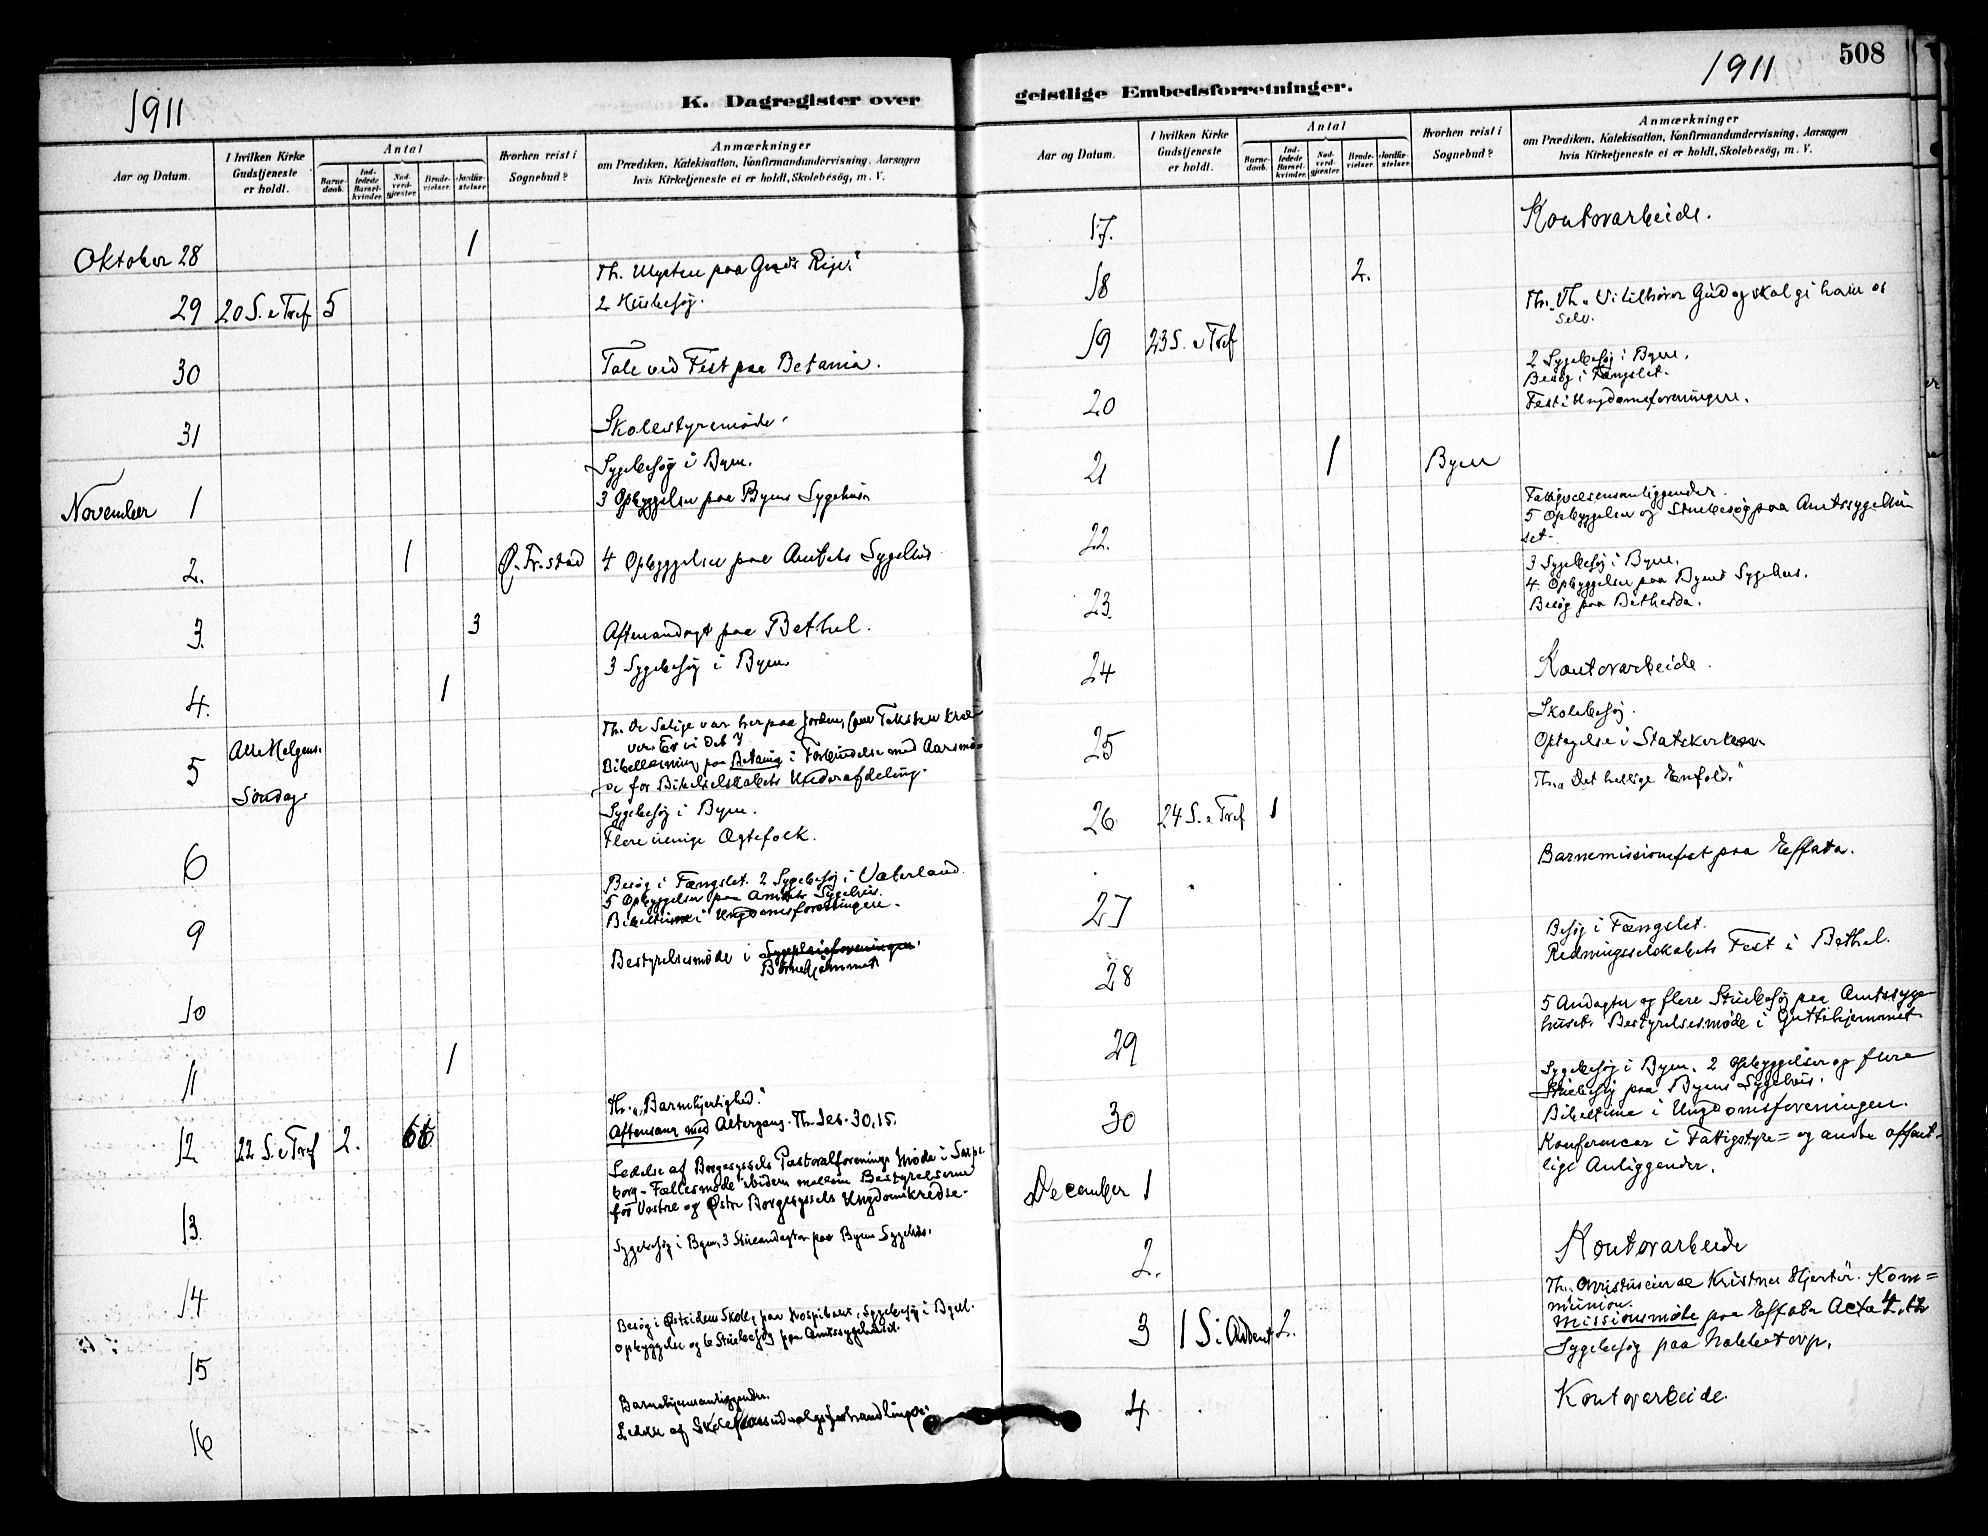 1911
K. Dagregister over
Aar og Datum.
I hvilken Kirke Gudstjeneste er holdt.
Antal
Barne-daab.
Ind-ledede Barsel-kvinder.
Nad-verd-gjæster.
Brude-vielser.
Jordfæ-stelser.
Hvorhen reist i Sognebud?
Anmærkninger
om Prædiken, Katekisation, Konfirmandundervisning, Aarsagen
hvis Kirketjeneste ei er holdt, Skolebesøg, m. V.
Oktober 28 1
Th. Mysten paa Guds Rige."
29 20 S. e Tref 5 2 Husbesøg.
30 Tale ved Fest paa Betania.
31 Skolestyremøde.
Sygebesøg i Byen.
November 1 3 Opbyggelser paa Byens Sygehus
2. 1 Ø. Fr.stad 4 Opbyggelser paa Amtets Sygehus
3. 3 Aftenandagt paa Bethel.
3 Sygebesøg i Byen
4. 1
Th. De Salige var her paa Jorden, som Teksten
ver. Er vi det?
5 Alle Helgens. Søndag
Bibellæsning paa Betania i Forbindelse med Aarsmø-
de for Bibelselskabets Underafdeling.
Sygebesøg i Byen.
Flere uenige Ægtefolk.
6
Besøg i Fængslet. 2 Sygebesøg i Vaterland.
5 Opbyggelser paa Amtets Sygehus.
Bibeltime i Ungdomsforeningen.
9
Bestyrelsesmøde i Sygepleieforeningen.
Børnehjemmet
10
11 1
Th. "Barmhjertighed."
Aftensang med Altergang. Th. Jes. 30,15.
12 22 S. e Tref 2. 66
Ledelse af Borgesyssels Pastoralforenings Møde i Sarps
borg - Fællesmøde mellem Bestyrelserne
for Vestre og Østre Borgesyssels Ungdomskredse.
13.
Sygebesøg i Byen, 3 Stueandagter paa Byens Sygehus.
14
Besøg i Østsidens Skole, paa Hospitalet, Sygebesøg i Byen.
Opbyggelse og 6 Stuebesøg paa Amtssygehuset.
15
Barnehjemsanliggender.
16
1911
508
geistlige Embedsforretninger.
Aar og Datum.
I hvilken Kirke Gudstjeneste er holdt.
Antal
Barne-daab.
Ind-ledede Barsel-kvinder.
Nad-verd-gjæster.
Brude-vielser.
Jordfæ-stelser.
Hvorhen reist i Sognebud?
Anmærkninger
om Prædiken, Katekisation, Konfirmandundervisning, Aarsagen
hvis Kirketjeneste ei er holdt, Skolebesøg, m. V.
17. Kontorarbeide.
18 2.
Th. Vi tilhører Gud og skal gi ham os
selv.
19 23 S. e Tref
2 Sygebesøg i Byen.
Besøg i Fængslet.
20 Fest i Ungdomsforeningen.
21 1 Byen
Fattigvæsensanliggender.
5 Opbyggelser og Stuebesøg paa Amtssygehu
set.
22.
3 Sygebesøg i Byen.
4 Opbyggelser paa Byens Sygehus.
Besøg paa Bethesda.
23.
24 Kontorarbeide.
Skolebesøg.
25
Th. "Det hellige Enfold."
26 24 S. e Tref 1
Barnemissionsfest paa Effata.
27
Besøg i Fængslet.
Redningsselskabets Fest i Bethel.
28
5 Andagter og flere Stuebesøg paa Amtssyge
huset. Bestyrelsesmøde i Guttehjemmet
29
Sygebesøg i Byen. 2 Opbyggelser og flere
Stuebesøg paa Byens Sygehus.
Bibeltime i Ungdomsforeningen.
30
Konferencer i Fattigstyre= og andre offent-
lige Anliggender.
December 1
2. Kontorarbeide
Th. Kristne Hjerter. Kom=
munion.
3 1 S i Advent 2. Missionsmøde paa Effata Acta 4.
Sygebesøg paa
4 Kontorarbeide